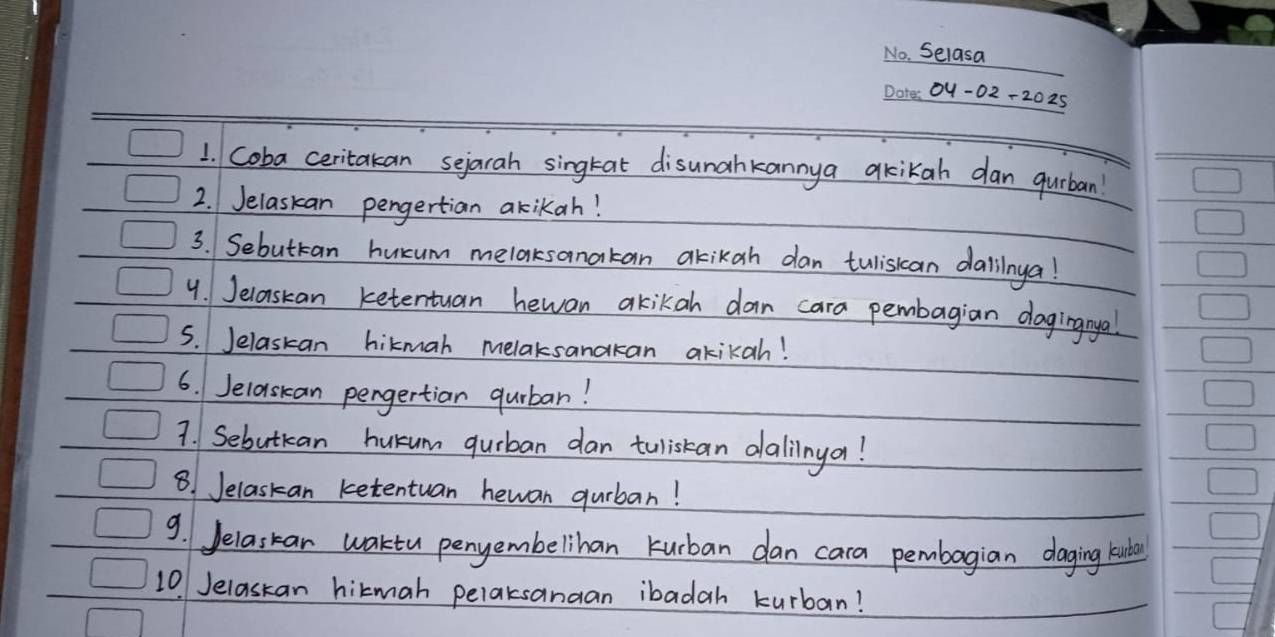 No. Selasa
Date: 04-02-2025
1. Coba ceritakan sejarah singkat disunahkannya akikah dan qurban!
2. Jelaskan pengertian akikah!
3. Sebutkan hukum melaksanakan akikah dan tuliskan dalilnya!
4. Jelaskan ketentuan hewan akikah dan cara pembagian dagingnya!
5. Jelaskan hikmah melaksanakan akikah!
6. Jelaskan pengertian qurban!
7. Sebutkan hukum qurban dan tuliskan dalilnya!
8. Jelaskan ketentuan hewan qurban!
9. Jelaskan waktu penyembelihan kurban dan cara pembagian daging kurban!
10. Jelaskan hikmah pelaksanaan ibadah kurban!